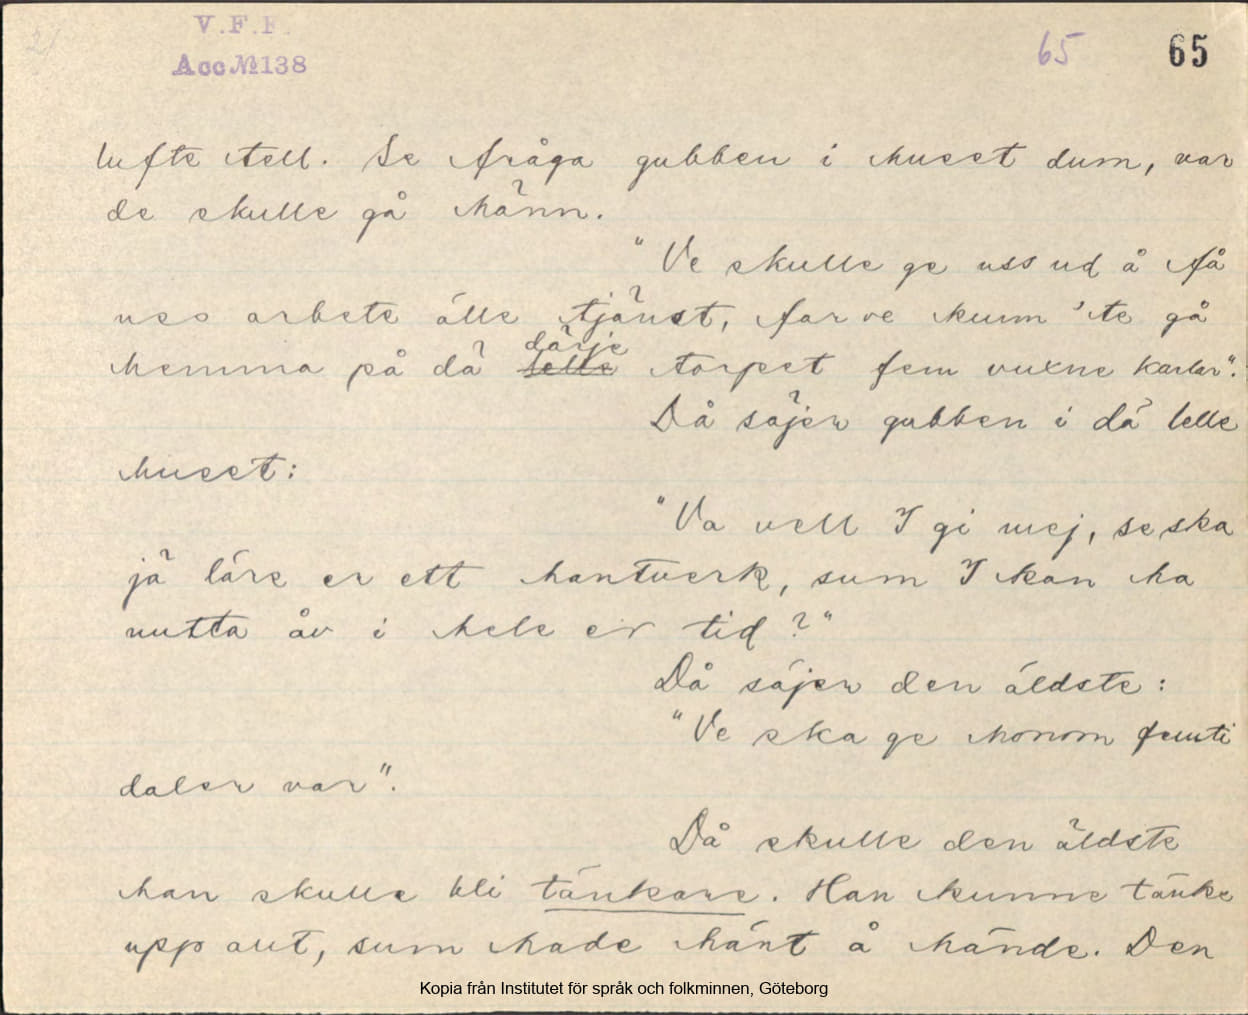 V.F.F.
Acc № 138
65
65
lufte tell. Se fråga gubben i huset dum, var
de skulle gå hänn.
"Ve skulle ge uss ud å få
uss arbete älle tjänst, far ve kunn 'te gå
hemma på dä därje torpet fem vuxne karlar".
Då säjer gubben i dä lelle
huset:
"Va vell I gi mej, se ska
jä läre er ett hantverk, sum I kan ha
nutta åv i hele er tid?"
Då säjer den äldste:
"Ve ska ge honom femti
daler var".
Då skulle den äldste
han skulle bli tänkare. Han kunne tänke
upp aut, sum hade hänt å hände. Den
Kopia från Institutet för språk och folkminnen, Göteborg